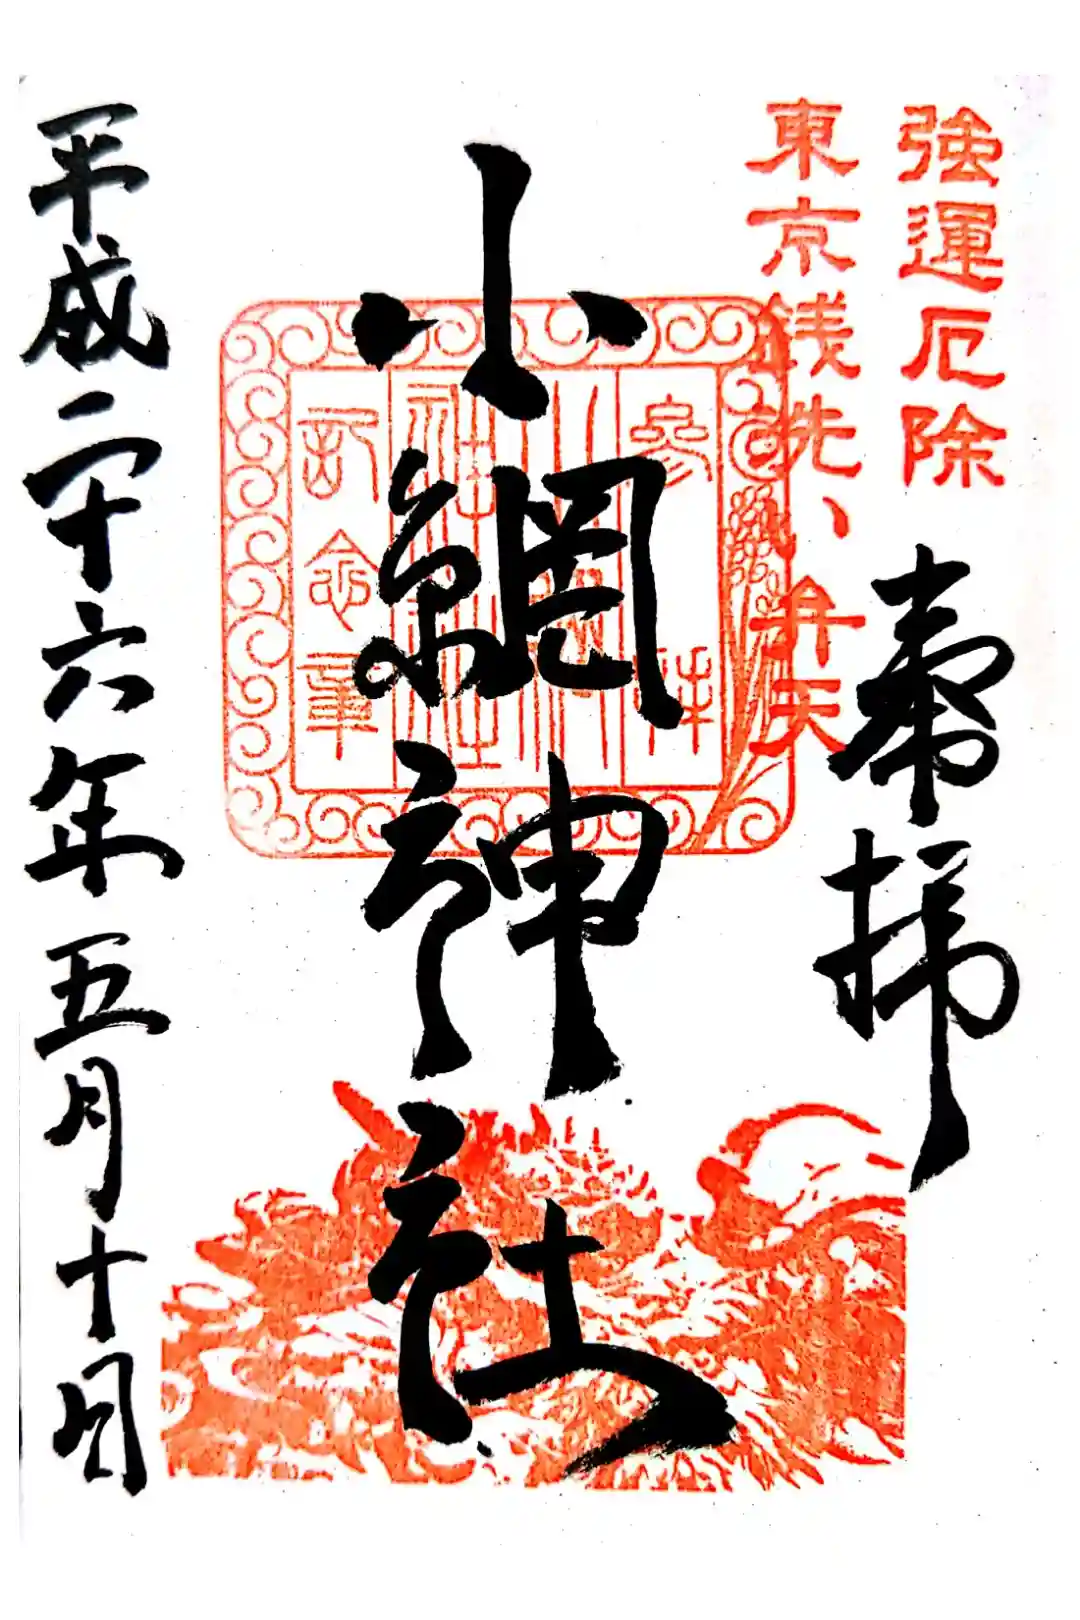 強運厄除
奉拝
東京銭洗い弁天
参拝
小網神社
記念章
小網神社
平成二十六年五月十日